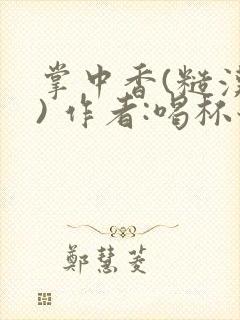 掌中香(糙汉
) 作者:喝杯
鄭慧菱